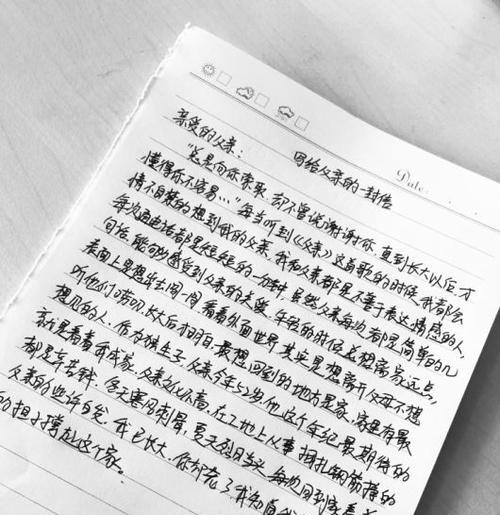 Date:
写给父亲的一封信
亲爱的父亲：
“总是向你索取 却不曾说谢谢你 直到长大以后 才
懂得你不容易…”每当听到《父亲》这首歌的时候，我都会
情不自禁的想到我的父亲。我和父亲都是不善于表达情感的人，
每次通电话都是短短的一分钟，虽然父亲每次都是简单的几
句话，能够感受到父亲的关爱。年轻的时候总想离家远点，
表面上是想出去闯一闯看看外面世界，其实是想离开父母不想
听他们唠叨，长大后 最想回到的地方是家，家里有最
想见的人。作为独生子，父亲今年52岁 他这个年纪最期待的
就是看着我成家，父亲文化不高，在工地上从事捆扎钢筋
都是辛苦钱，冬天寒风刺骨，夏天烈日 每次回到家看着
父亲的些许白发，我已长大，你却老了 我知道
的担子撑起这个家。